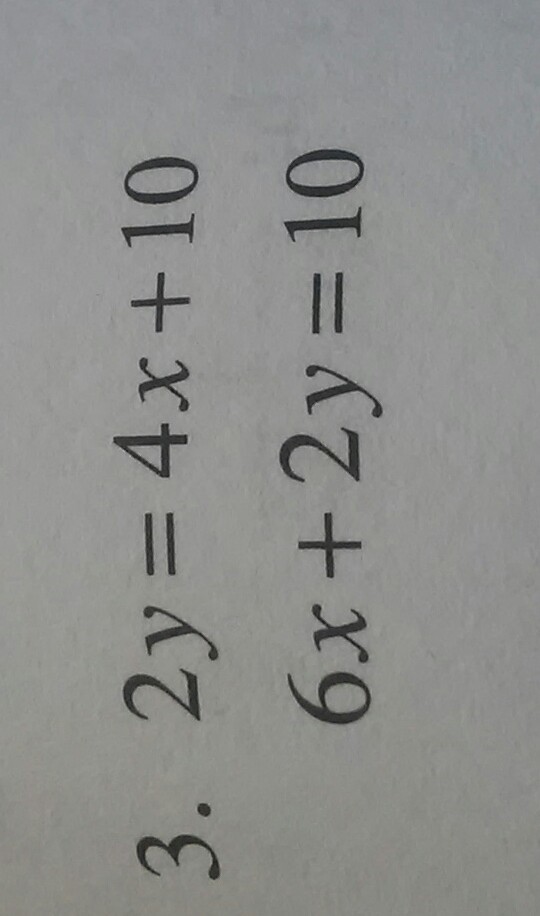 3. 2y = 4x + 10
6x + 2y = 10